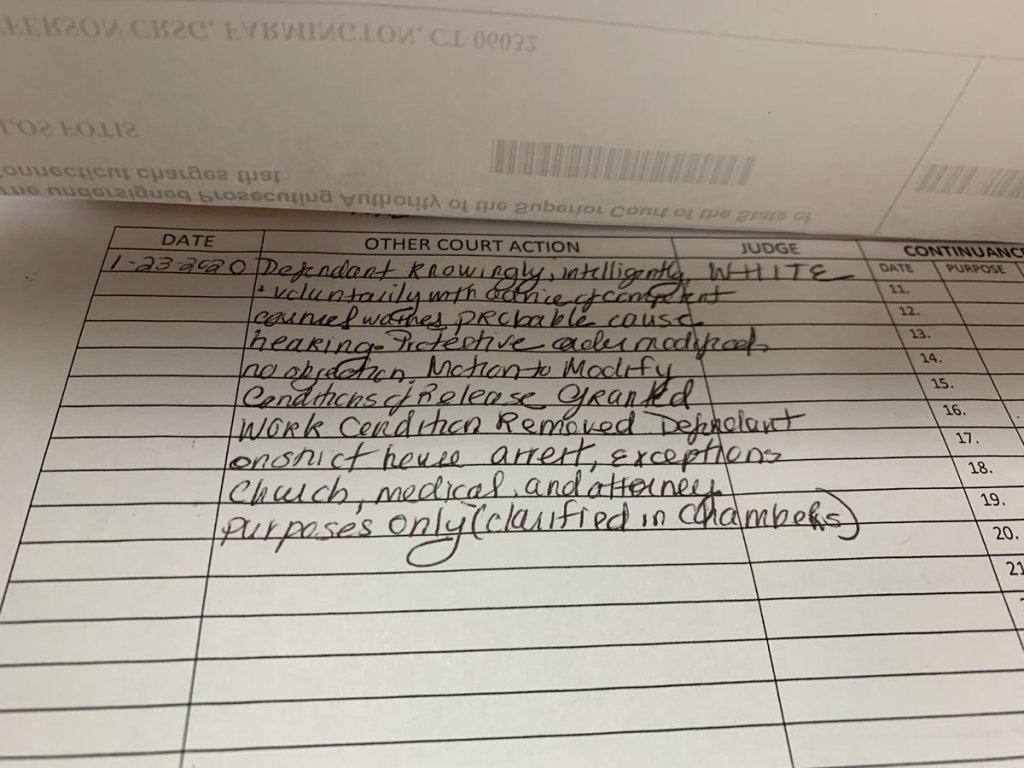 FFERSON CRSG, FARMINGTON, CT 06032
LOS FOTIS
onnecticut charges that
The undersigned Prosecuting Authority of the Superior Court of the State of
DATE OTHER COURT ACTION JUDGE CONTINUANC
DATE PURPOSE
1-23-2020 Defendant knowingly, intelligently, WHITE 11.
+ voluntarily with advice of competent 12.
counsel waives probable cause 13.
hearing. Protective order modified, 14.
no objection. Motion to Modify 15.
Conditions of Release Granted 16.
Work Condition Removed Defendant 17.
on strict house arrest, exceptions 18.
Church, medical, and attorney 19.
purposes only (clarified in Chambers) 20.
21